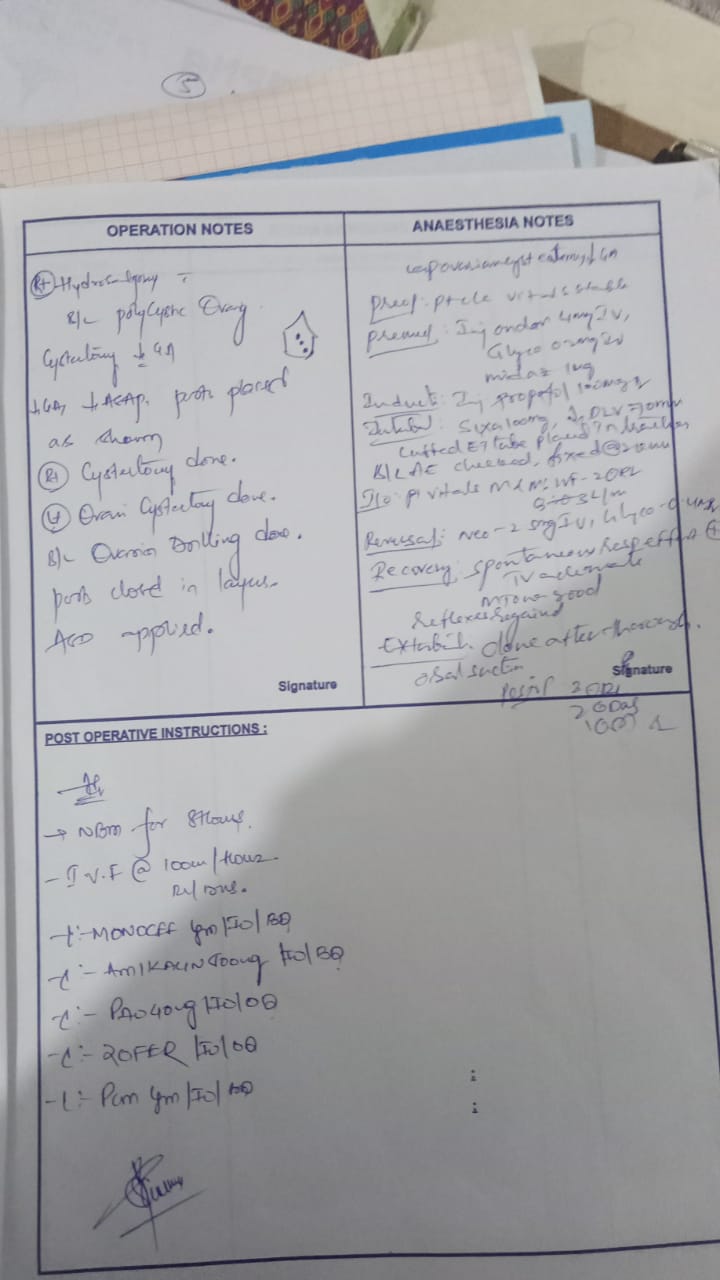 5
OPERATION NOTES
Rt Hydrosalpinx c
B/L polycystic Ovary
Cystectomy ↓ GA
↓GA, ↓ASAP, ports placed
as shown
Rt Cystectomy done.
Lt Ovari Cystectomy done.
B/L Ovarian Drilling done.
ports closed in layers.
ASD applied.
Signature
ANAESTHESIA NOTES
Preop: vitals stable
Premed: Inj ondon 4mg IV,
Glyco 0.2mg IV
midaz 1mg
Induct: Inj propofol 100mg
Intubat: Sux 100mg,
cuffed ET tube placed in trachea
B/L AE checked, fixed @
I/O: vitals
Reversal: Neo-2.5mg IV, Glyco-0.4mg
Recovery: spontaneous Resp effort +
TV adequate
MTone good
Reflexes Regained
Extubat. done after thorough
oral suction
Signature
POST OPERATIVE INSTRUCTIONS :
→ NBM for 8Hours.
- I.V.F @ 100ml/Hour
RL/DNS.
-I:- MONOCEF 1gm/IV/BD
-I:- AMIKACIN 500mg/IV/BD
-I:- PAN 40mg/IV/OD
-I:- ZOFER/IV/OD
-I:- PCM 1gm/IV/BD